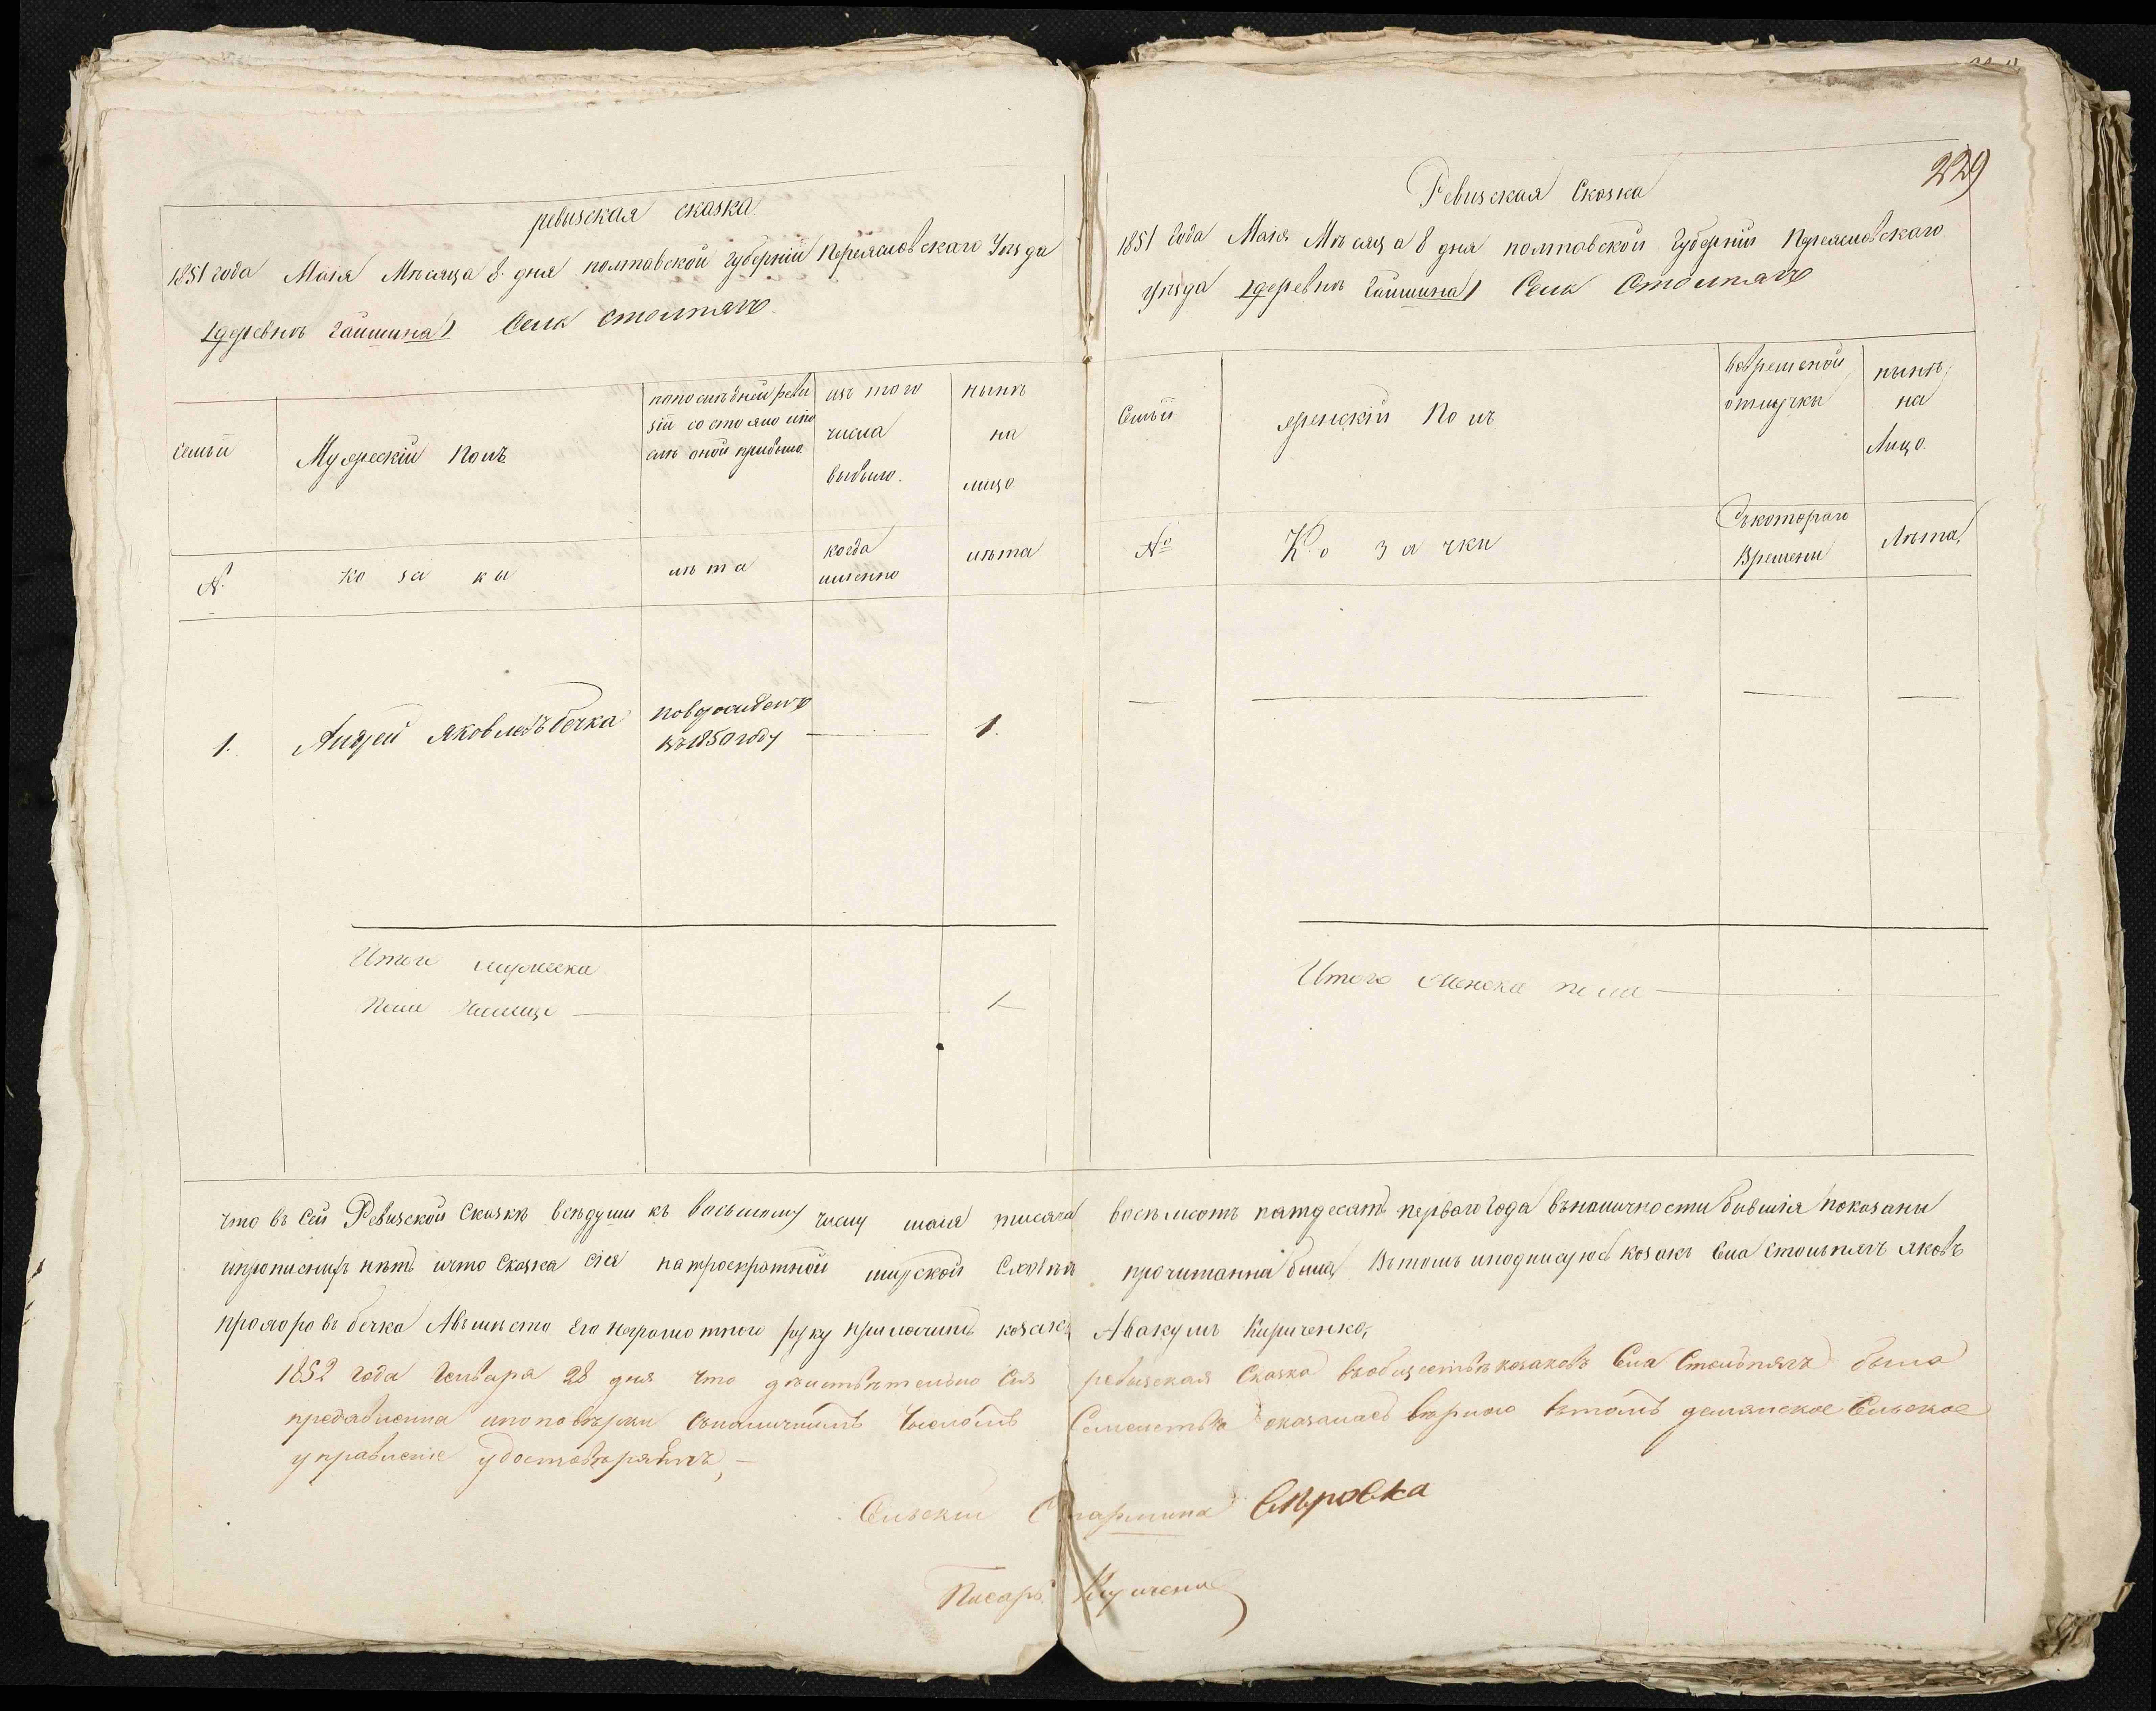 ревизская сказка
1851 года Маія Мѣсяца 8 дня полтавской губерніи Переяславскаго Уѣзда
/деревнѣ Гайшина/ Села Столпягъ
Семьи
Мужескій Полъ
попослѣдней реви
зіи состояло ипо
слѣ оной прибыло
изъ того
числа
выбыло.
нынѣ
на
лицо
№
козаки
лѣта
когда
именно
лѣта
1.
Андрей Яковлевъ бечка
въ1850 году
1.
Итого мужеска
Пола налице
1
229
Ревизская Сказка
1851 Года Маія Мѣсяца 8 дня полтавской Губерніи Переяславскаго
уѣзда /деревнѣ Гайшина/ Села Столпягъ
Семьи
женскій Полъ
вовременной
отлучкы
нынѣ
на
Лицо.
№
Козачки
Съкотораго
Времени
Лѣта,
Итого Женска пола
что въ Сей Ревизской Сказкѣ всѣдуши къ восьмому числу маія тисяча восѣмсотъ пятдесятъ перваго Года въналичности бывшія показаны
ипрописныхъ нѣтъ ичто Сказка сія натроекратной мирской Сходкѣ прочитанна была, Вътомъ иподписуюсь козакъ Села Столпягъ яковъ
бечка Авмѣсто Его Неграмотного руку приложилъ козакъ Авакумъ Кириченко,
1852 года Генваря 28 дня Что дѣйствительно Сія ревизская Сказка въобществѣкозаковъ Села Столпягъ была
предявленна ипоповѣрки Съналичнымъ Числомъ Семействъ оказалась вѣрною вътомъ демянское Сельское
управленіе удостовѣряетъ,
Сельскій Старшина Сѣровка
Писарь